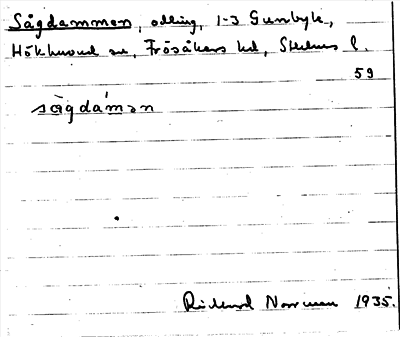 Sågdammen, odling, 1-3 Gunbyle,
Hökhuvud sn, Frösåkers hd, Sthlms l.
59
sågdámən
Rickard Norrman 1935.